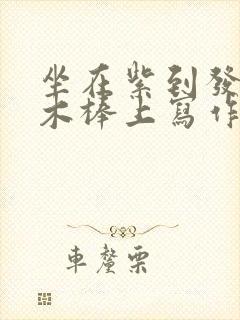 坐在紫到發
木棒上寫作
車釐栗